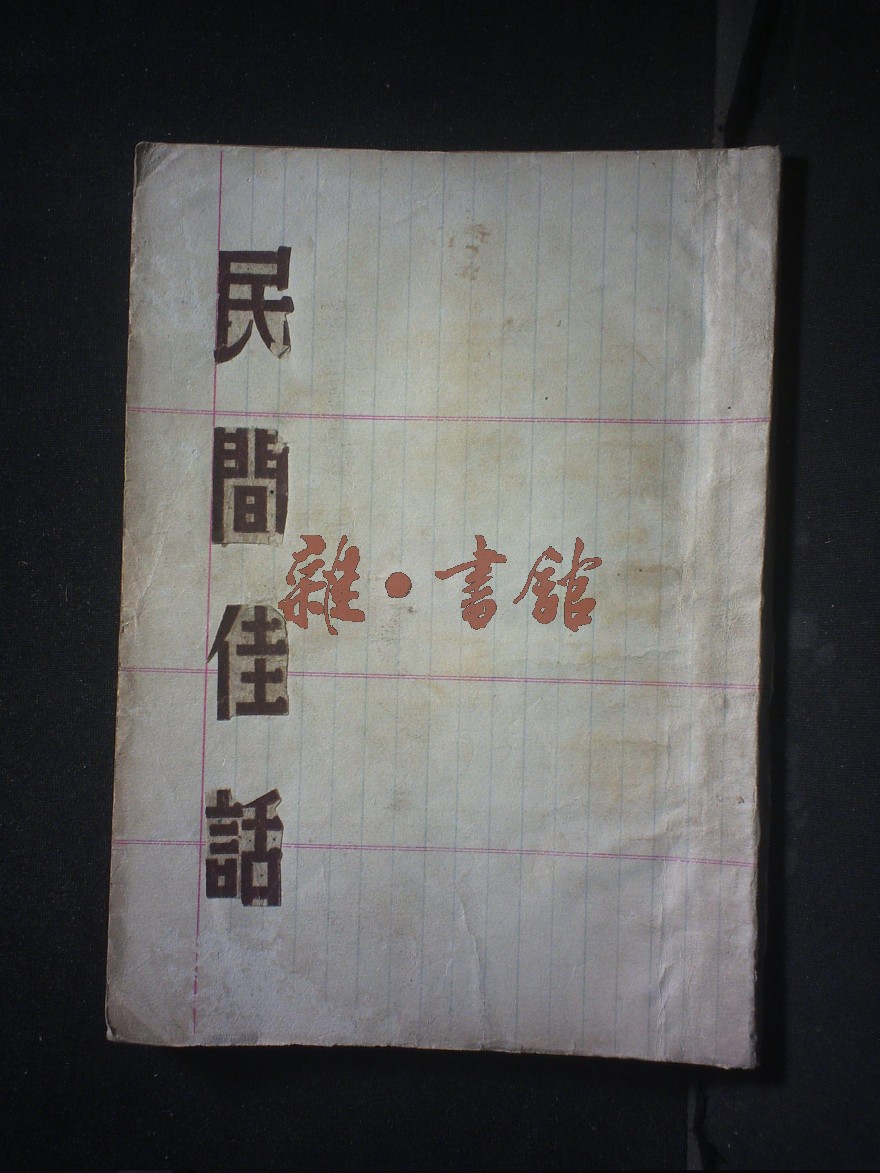 民間佳話
雜·書館